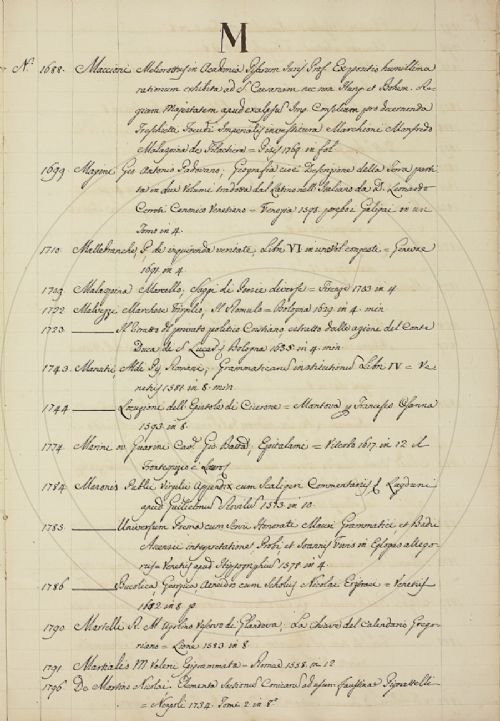 M
N.° 1688. Maccioni Migliorotti in Academia Pisarum Juris Prof. Expositio humillima
rationum exhibita ad S. Caesaream nec non Hung. et Bohem. Re-
giam Majestatem apud excelsum Imp. Consilium pro decernenda
Imperialis investitura Marchioni Manfredo
Malaspina de Filattiera = Pisis 1769. in fol.
1699. Magini Gio Antonio Padovano, Geografia cioè Descrizione della Terra parti-
ta in due Volumi tradotta dal Latino nell'Italiano da D. Leonardo
Cernoti Canonico Veneziano = Venezia 1598. Galignani in un
Tomo in 4.
1710. Mallebranche, P. de inquirenda veritate, Libri VI in = Genevae
1691. in 4.
Malaspina Marcello, Saggi di Poesie diverse = Firenze 1741 in 4.
1722. Malvezzi Marchese Virgilio, Il Romulo = Bologna 1629. in 4. min
1723. ——— Il Ritratto del privato politico Cristiano, estratto dalle azione del Conte
Duca di S. Lucar = Bologna 1635. in 4. min
1743. Manutii, Aldi Pii Romani, Grammaticarum institutionum Libri IV = Ve-
netiis 1581. in 8. min
1744. ——— Locuzioni dell'Epistole di Cicerone = Mantova Francesco Osanna
1593. in 8.
1774. Marino ov. Guarini Cav. Gio Batta, Epitalami = Viterbo 1617. in 12. Il
frontespizio è
1784. Maronis Publii Virgilii Appendix cum Scaligeri Commentariis = Lugduni
apud Guilielmum Rovilium 1573. in
1785. ——— Universum Poema cum Servii Honorati Mauri Grammatici, et Badii
Ascensii interpretatione Probi, et Joannis Vivis in Eglogas allego-
riis Venetiis apud 1571. in 4.
1786. ——— Bucolica Georgica, Aeneidos cum Scholiis Nicolai = Venetiis
in 8.
1790. Martelli R. M. Ugolino Vescovo di Glandeva, La Chiave del Calendario Grego-
riano = Lione 1583. in 8.
1791. Martialis M. Valeri Epigrammata = Romae 1558. in 12.
1796. De Martino Nicolai Elementa Sectionum Conicarum ad usum Faustinae Pignatelli
= Napoli 1734. Tomi 2. in 8.